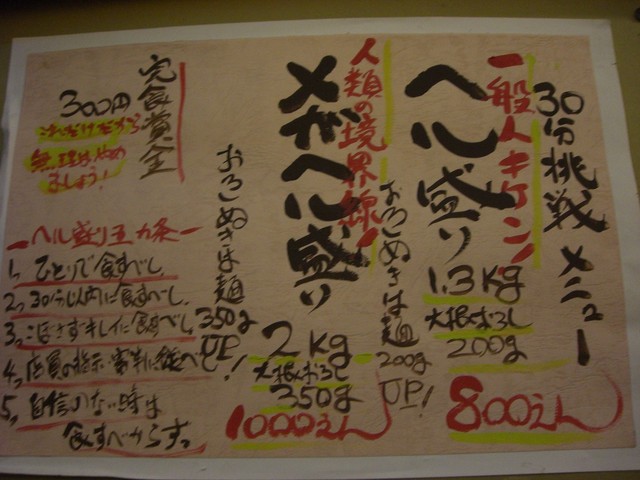 30分挑戦メニュー
一般人キケン!
ヘル盛り
1.3kg
大根おろし
200g
おろしぬきは麺
200g
UP!
800えん
人類の境界線!
メガヘル盛り
2kg
大根おろし
350g
おろしぬきは麺
350g
UP!
1000えん
完食賞金
300円
これだけだから
無理はやめ
ましょう!
ーヘル盛り五カ条ー
1、ひとりで食すべし
2、30分以内に食すべし
3、こぼさずキレイに食すべし
4、店員の指示・審判に従べし
5、自信のない時は
食すべからずっ